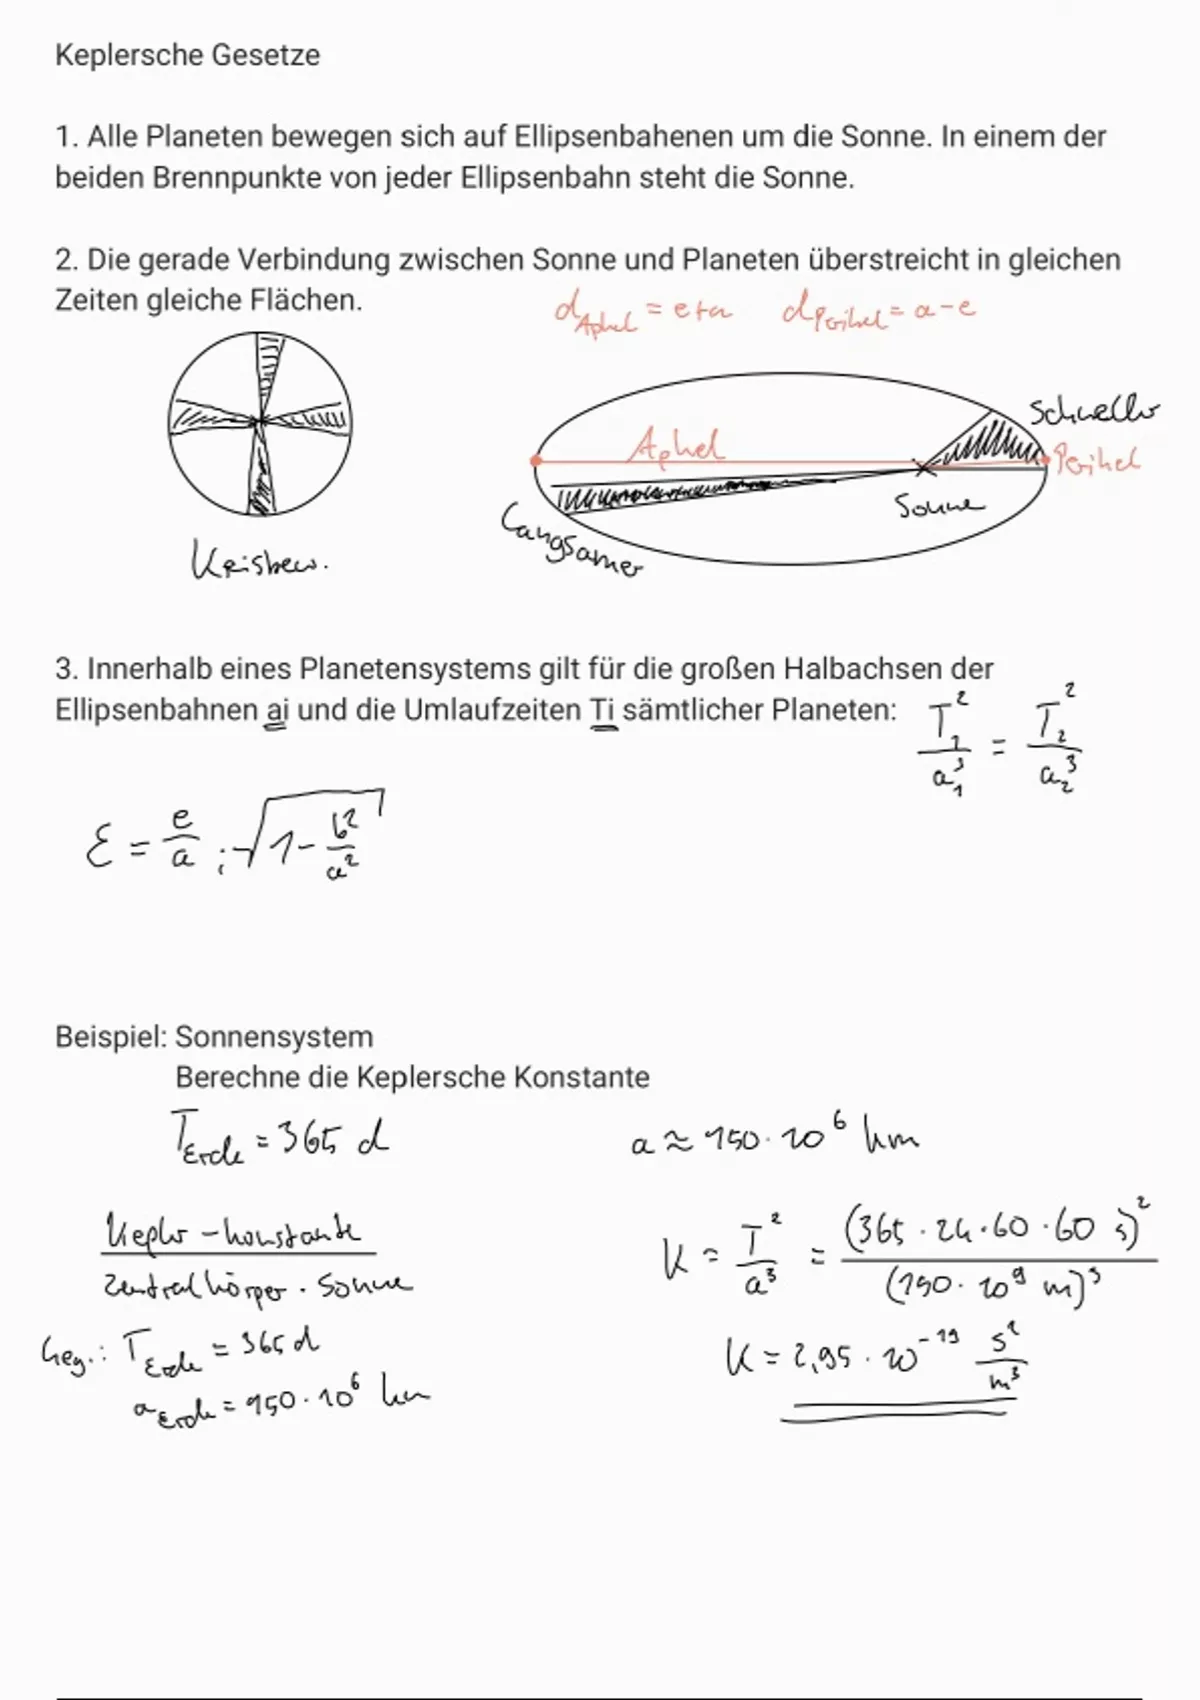 Keplersche Gesetze
1. Alle Planeten bewegen sich auf Ellipsenbahenen um die Sonne. In einem der
beiden Brennpunkte von jeder Ellipsenbahn steht die Sonne.
2. Die gerade Verbindung zwischen Sonne und Planeten überstreicht in gleichen
Zeiten gleiche Flächen.
d_Aphel = e+a d_Perihel = a-e
Schneller
Aphel
Perihel
Sonne
Langsamer
Kreisbew.
3. Innerhalb eines Planetensystems gilt für die großen Halbachsen der
Ellipsenbahnen ai und die Umlaufzeiten Ti sämtlicher Planeten:
T₁²/a₁³ = T₂²/a₂³
ε = e/a ; √(1 - b²/a²)
Beispiel: Sonnensystem
Berechne die Keplersche Konstante
T_Erde = 365 d
a ≈ 150 · 10⁶ km
Kepler-konstante
Zentralkörper · Sonne
Geg.: T_Erde = 365 d
a_Erde = 150 · 10⁶ km
K = T²/a³ = (365 · 24 · 60 · 60 s)²/(150 · 10⁹ m)³
K = 2,95 · 10⁻¹⁹ s²/m³